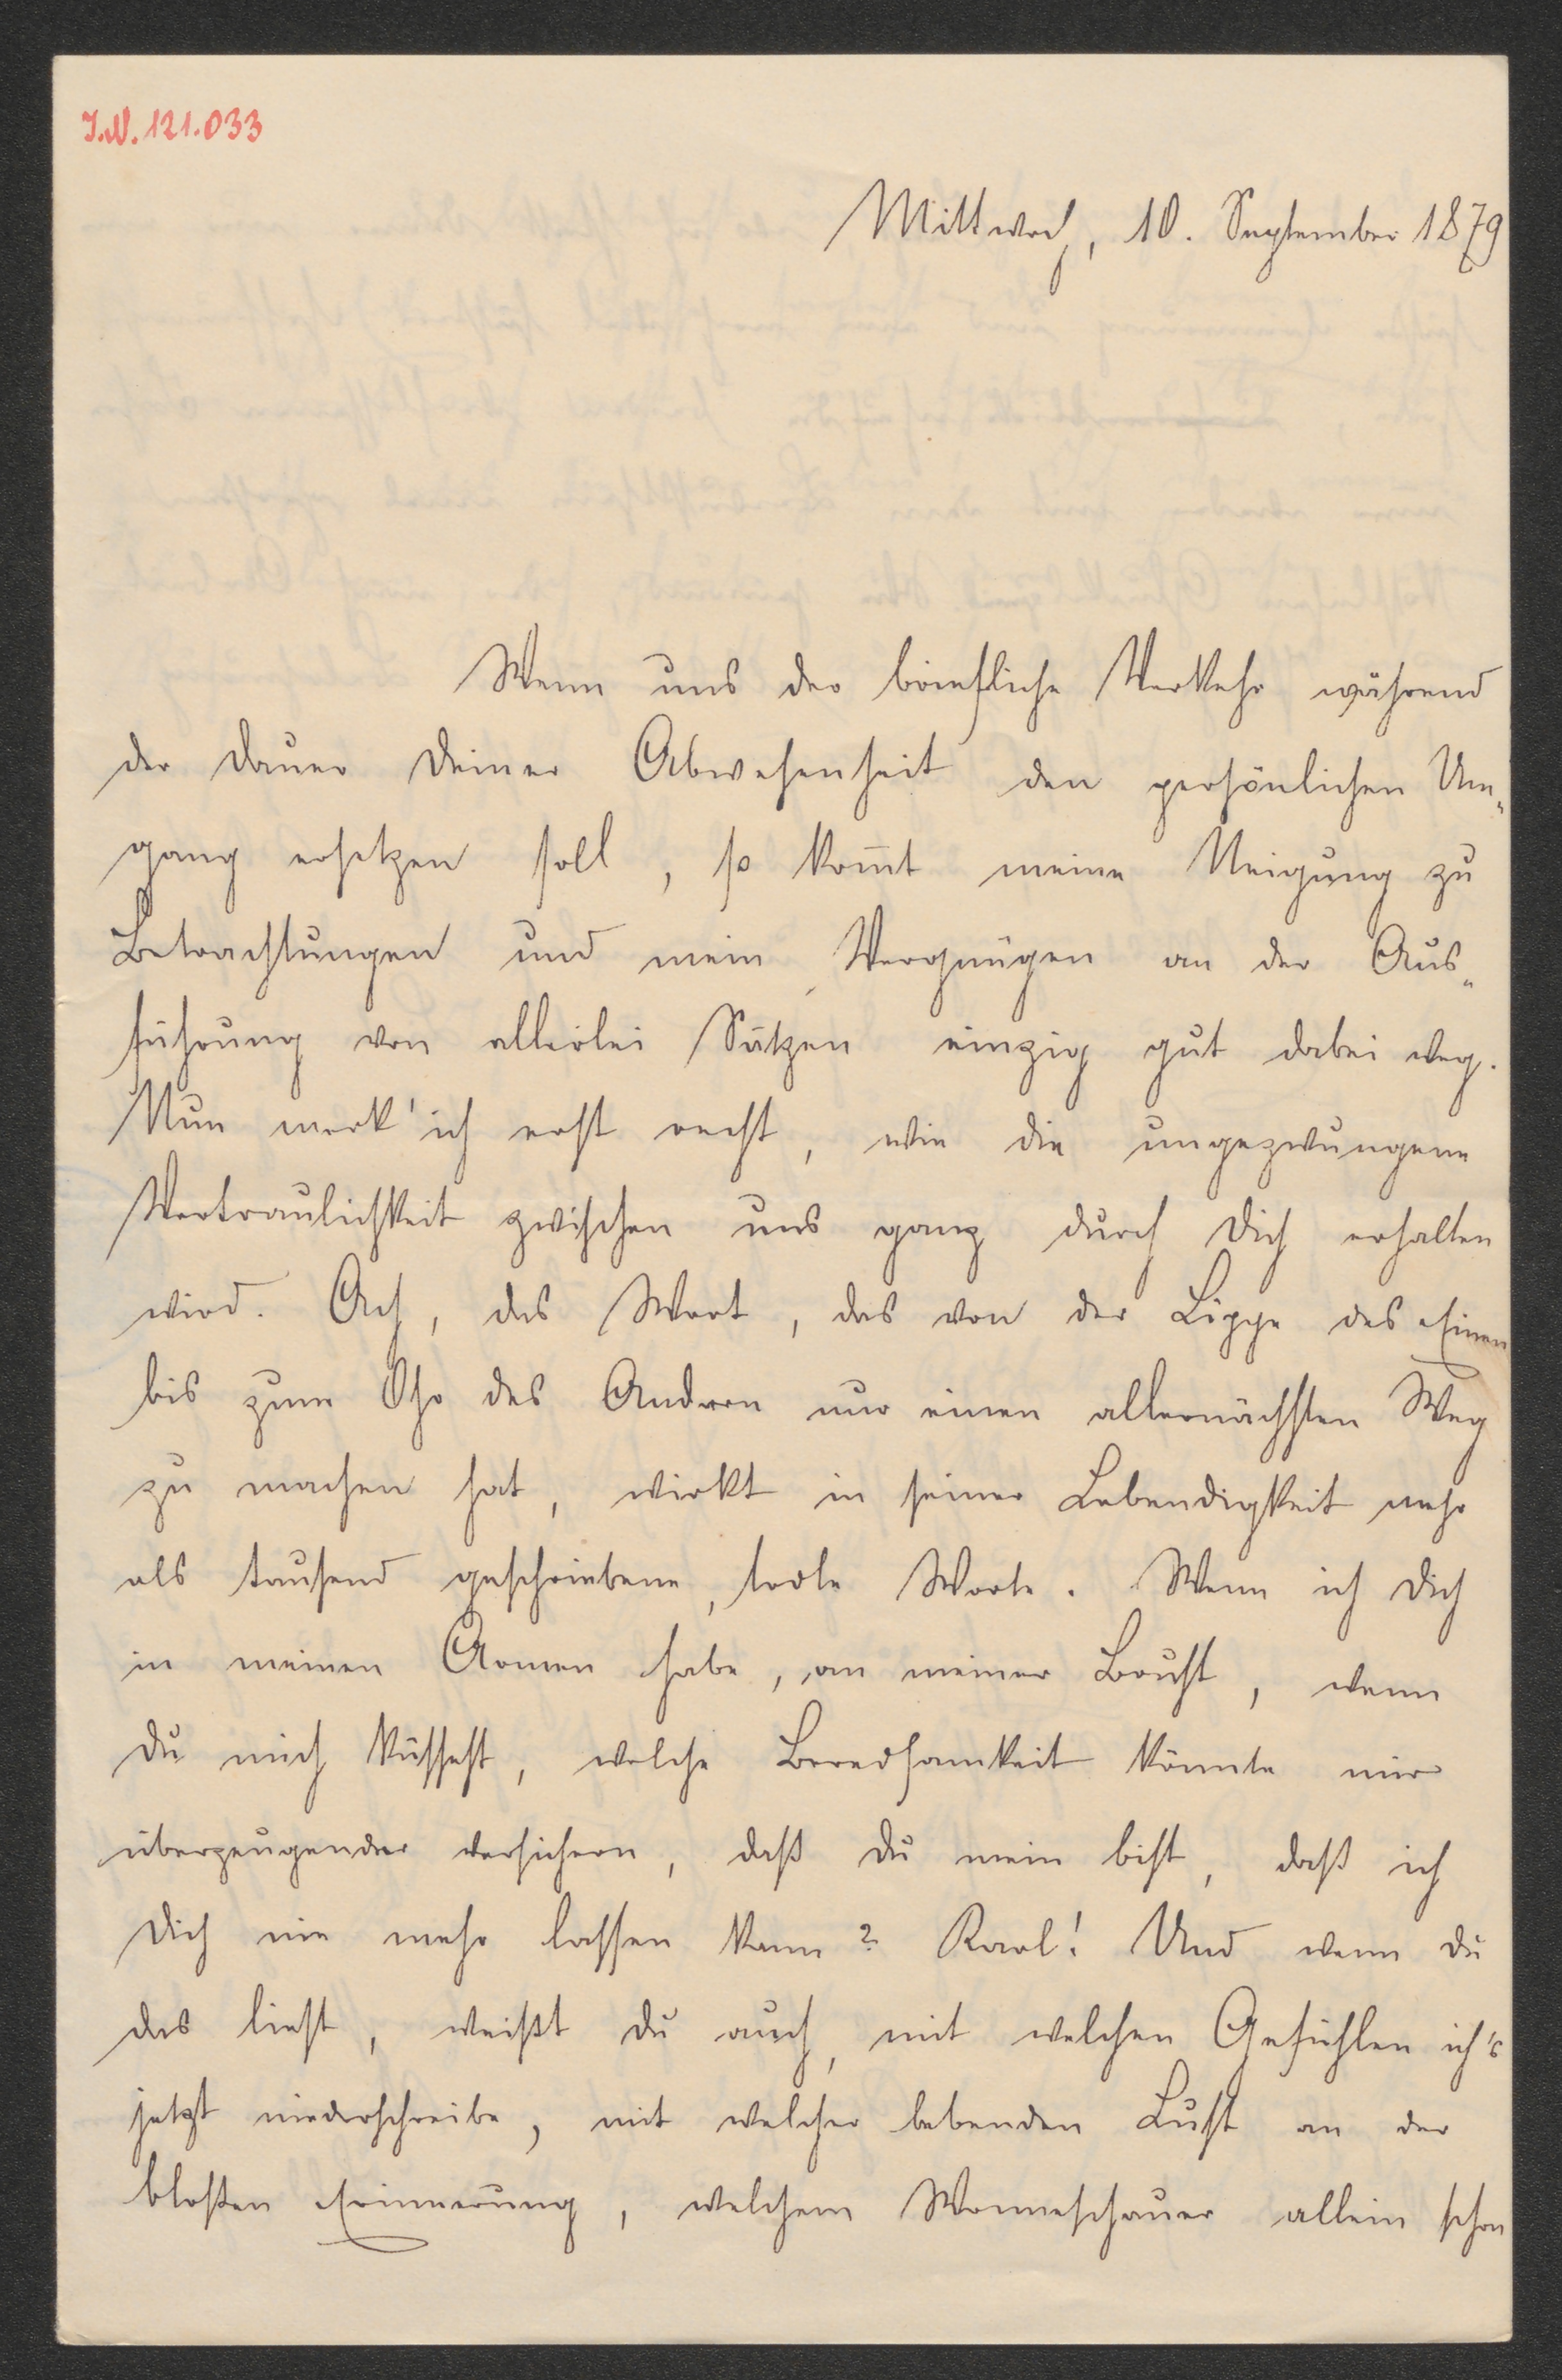 I.N. 121.033
Mittwoch, 10. September 1879
Wenn uns der briefliche Verkehr während
der Dauer Deiner Abwesenheit den persönlichen Um„
gang ersetzen soll, so kom̅t meine Neigung zu
Betrachtungen und mein Vergnügen an der Aus„
führung von allerlei Sätzen einzig gut dabei weg.
Nun merk' ich erst recht, wie die ungezwungene
Vertraulichkeit zwischen uns ganz durch Dich erhalten
wird. Ach, das Wort, das von der Lippe des Einen
bis zum Ohr des Andern nur einen allernächsten Weg
zu machen hat, wirkt in seiner Lebendigkeit mehr
als tausend geschriebene, todte Worte. Wenn ich Dich
in meinen Armen habe, an meiner Brust, wenn
Du mich küssest, welche Beredsamkeit könnte mir
überzeugender versichern, daß Du mein bist, daß ich
Dich nie mehr lassen kann? Karl! Und wenn Du
das liest, weißt Du auch, mit welchen Gefühlen ich's
jetzt niederschreibe, mit welcher bebenden Lust an der
bloßen Erinnerung, welchem Wonneschauer allein schon